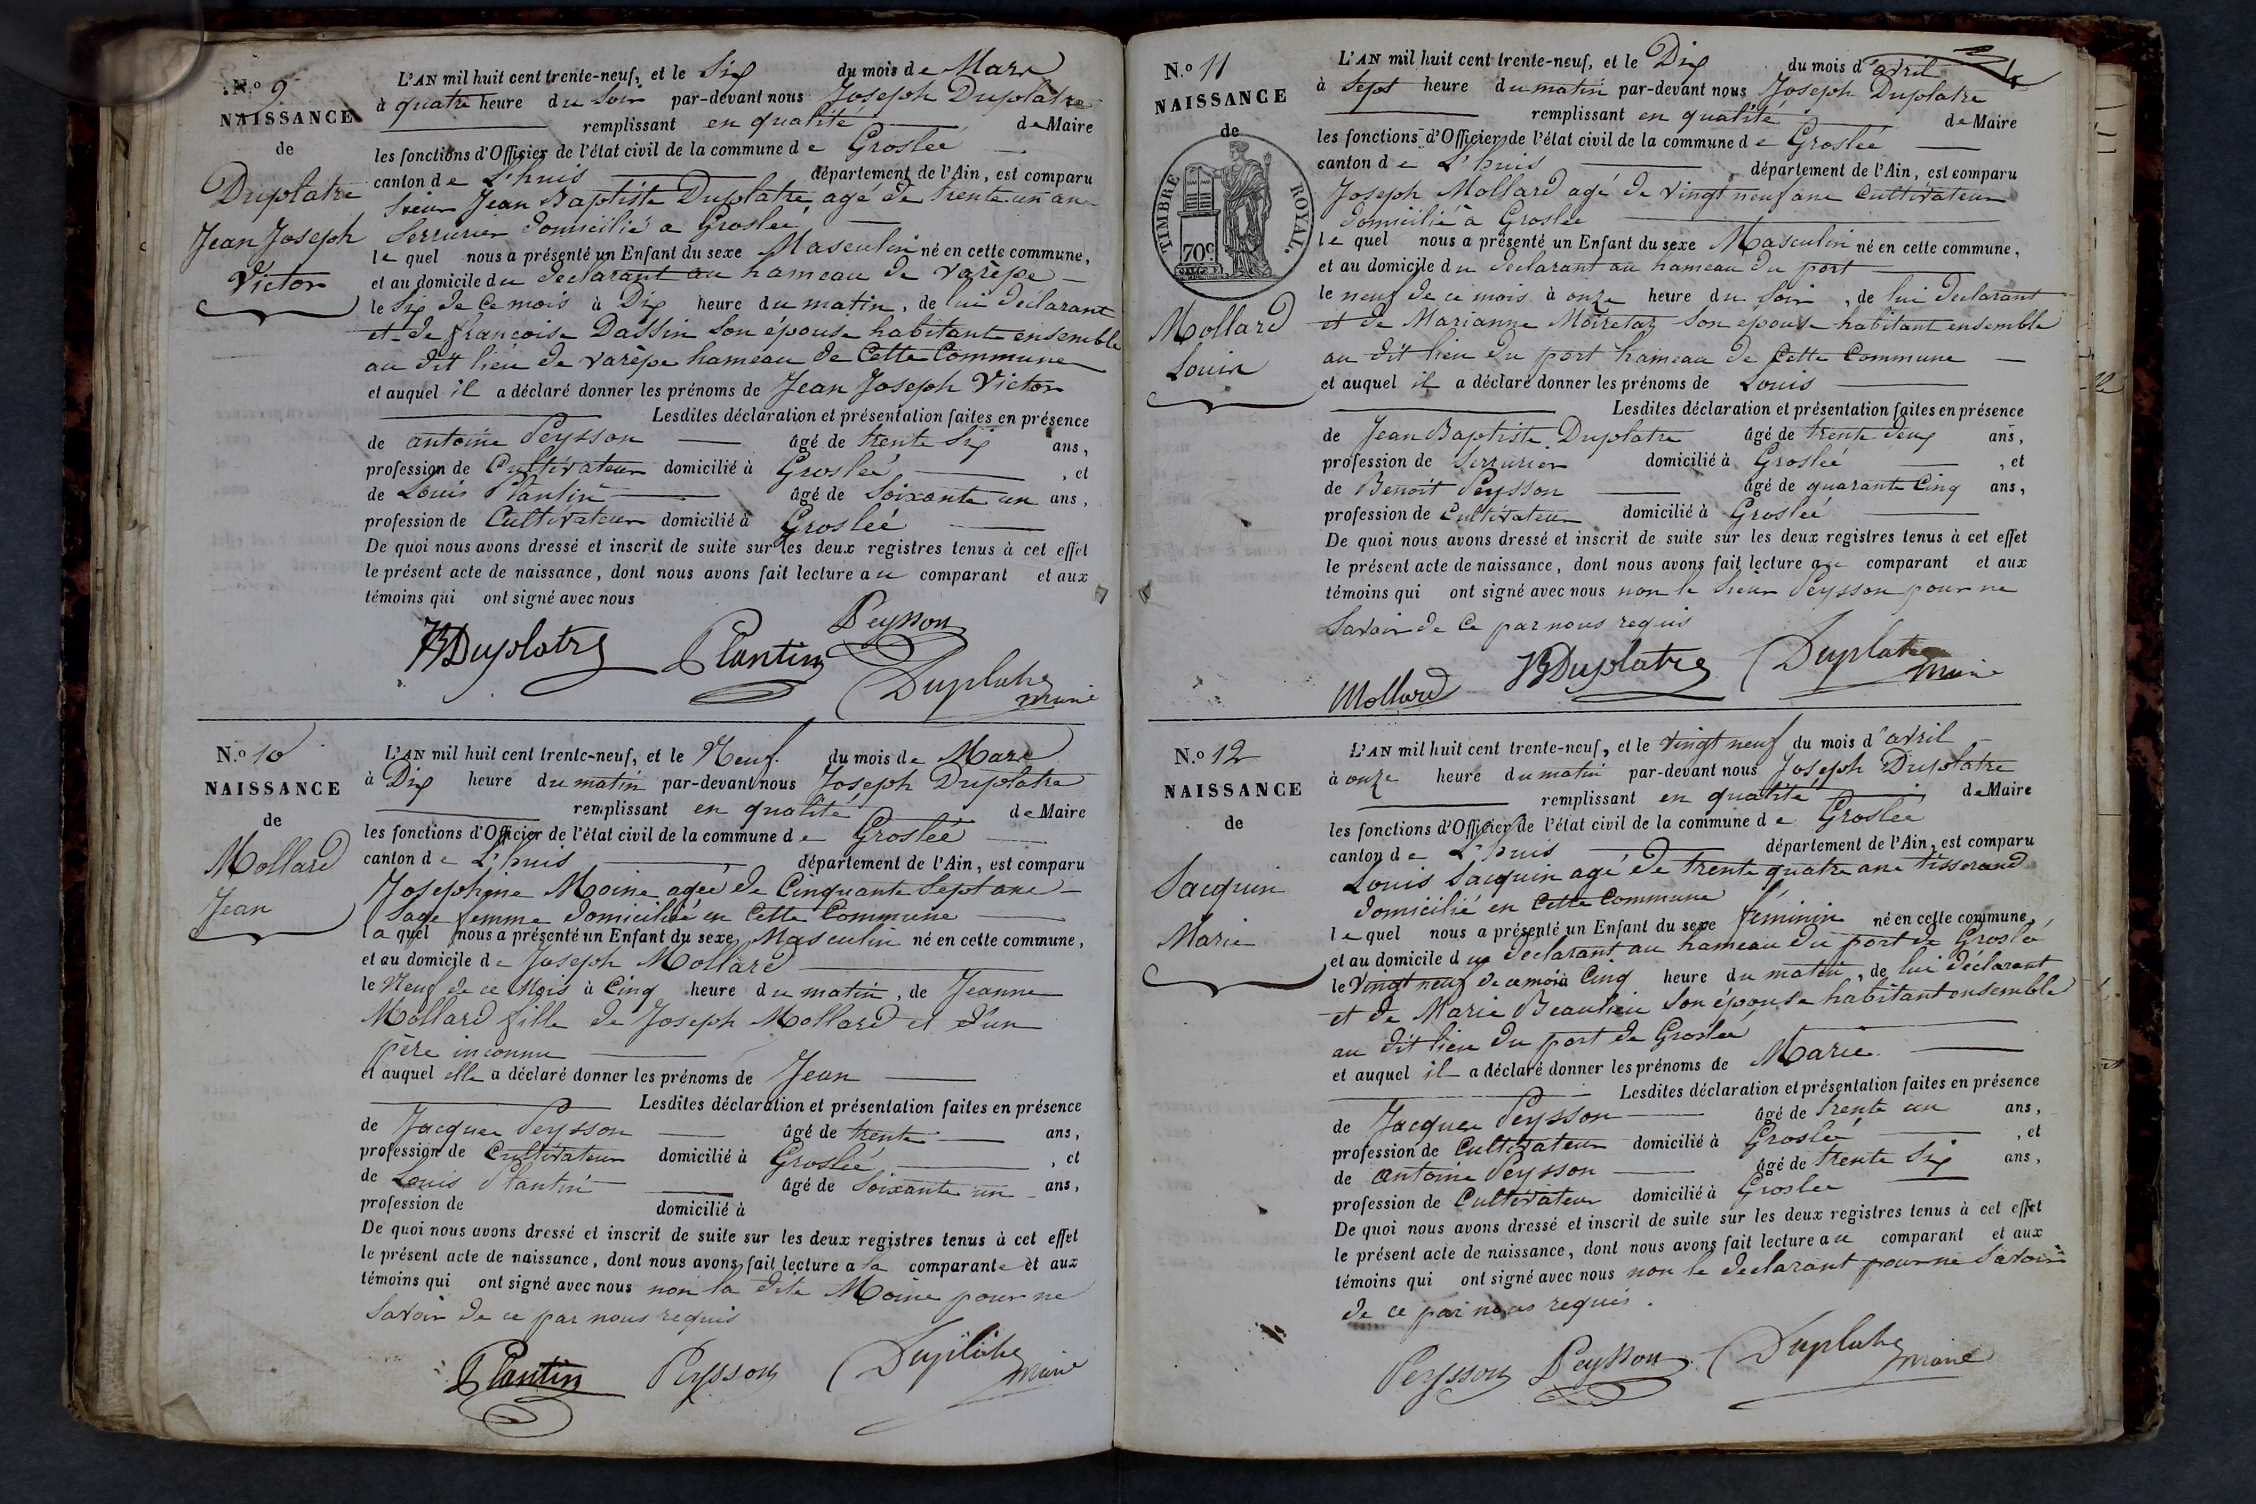 N.o 9.
NAISSANCE
de
Duplatre
Jean Joseph
Victor
L'AN mil huit cent trente-neuf, et le Six du mois de Mars
à quatre heure du Soir par-devant nous Joseph Duplatre
remplissant en qualité de Maire
les fonctions d'Officier de l'état civil de la commune de Groslée
canton de L'huis département de l'Ain, est comparu
Sieur Jean Baptiste Duplatre agé de trente un ans
Serrurier domicilié a Groslée
le quel nous a présenté un Enfant du sexe Masculin né en cette commune,
et au domicile du declarant au hameau de varèpe
le Six de ce mois à Dix heure du matin, de lui declarant
et de françoise Dassin son épouse habitant ensemble
au dit lieu de varèpe hameau de Cette Commune
et auquel il a déclaré donner les prénoms de Jean Joseph Victor
Lesdites déclaration et présentation faites en présence
de antoine Peysson âgé de trente Six ans,
profession de Cultivateur domicilié à Groslée, et
de Louis Plantin âgé de Soixante un ans,
profession de Cultivateur domicilié à Groslée
De quoi nous avons dressé et inscrit de suite sur les deux registres tenus à cet effet
le présent acte de naissance, dont nous avons fait lecture au comparant et aux
témoins qui ont signé avec nous
JBDuplatre Plantin Peysson
Duplatre
maire
N.o 10
NAISSANCE
de
Mollard
Jean
L'AN mil huit cent trente-neuf, et le Neuf. du mois de Mars
à Dix heure du matin par-devant nous Joseph Duplatre
remplissant en qualité de Maire
les fonctions d'Officier de l'état civil de la commune de Groslée
canton de L'huis département de l'Ain, est comparu
Josephine Moine agée de Cinquante Sept ans
Sage femme domiciliée en Cette Commune
la quel nous a présenté un Enfant du sexe Masculin né en cette commune,
et au domicile de Joseph Mollard
le Neuf de ce Mois à Cinq heure du matin, de Jeanne
Mollard fille de Joseph Mollard et d'un
père inconnu
et auquel elle a déclaré donner les prénoms de Jean
Lesdites déclaration et présentation faites en présence
de Jacques Peysson âgé de trente ans,
profession de Cultivateur domicilié à Groslée, et
de Louis Plantin âgé de Soixante un ans,
profession de domicilié à
De quoi nous avons dressé et inscrit de suite sur les deux registres tenus à cet effet
le présent acte de naissance, dont nous avons fait lecture a la comparante et aux
témoins qui ont signé avec nous non la dite Moine pour ne
Savoir de ce par nous requis
Plantin Peysson Duplatre
maire
N.o 11
NAISSANCE
de
TIMBRE ROYAL.
70c
Mollard
Louis
L'AN mil huit cent trente-neuf, et le Dix du mois d'avril
à Sept heure du matin par-devant nous Joseph Duplatre
remplissant en qualité de Maire
les fonctions d'Officier de l'état civil de la commune de Groslée
canton de L'huis département de l'Ain, est comparu
Joseph Mollard agé de vingt neuf ans Cultivateur
domicilié à Groslée
le quel nous a présenté un Enfant du sexe Masculin né en cette commune,
et au domicile du declarant au hameau du port
le neuf de ce mois à onze heure du Soir, de lui declarant
et de Marianne Moiretaz Son épouse habitant ensemble
au dit lieu du port hameau de Cette Commune
et auquel il a déclaré donner les prénoms de Louis
Lesdites déclaration et présentation faites en présence
de Jean Baptiste Duplatre âgé de trente deux ans,
profession de Serrurier domicilié à Groslée, et
de Benoit Peysson âgé de quarante Cinq ans,
profession de Cultivateur domicilié à Groslée
De quoi nous avons dressé et inscrit de suite sur les deux registres tenus à cet effet
le présent acte de naissance, dont nous avons fait lecture au comparant et aux
témoins qui ont signé avec nous non le Sieur Peysson pour ne
Savoir de Ce par nous requis
Mollard JBDuplatre Duplatre
maire
N.o 12
NAISSANCE
de
Sacquin
Marie
L'AN mil huit cent trente-neuf, et le vingt neuf du mois d'avril
à onze heure du matin par-devant nous Joseph Duplatre
remplissant en qualité de Maire
les fonctions d'Officier de l'état civil de la commune de Groslée
canton de L'huis département de l'Ain, est comparu
Louis Sacquin agé de trente quatre ans tisserand
domicilié en Cette Commune
le quel nous a présenté un Enfant du sexe féminin né en cette commune,
et au domicile du declarant au hameau du port de Groslée
le Vingt neuf de ce mois à Cinq heure du matin, de lui déclarant
et de Marie Beaulieu Son épouse habitant ensemble
au dit lieu du port de Groslée
et auquel il a déclaré donner les prénoms de Marie
Lesdites déclaration et présentation faites en présence
de Jacques Peysson âgé de trente un ans,
profession de Cultivateur domicilié à Groslée, et
de antoine Peysson âgé de trente Six ans,
profession de Cultivateur domicilié à Groslee
De quoi nous avons dressé et inscrit de suite sur les deux registres tenus à cet effet
le présent acte de naissance, dont nous avons fait lecture au comparant et aux
témoins qui ont signé avec nous non le declarant pour ne Savoir
de ce par nous requis.
Peysson Peysson Duplatre
maire